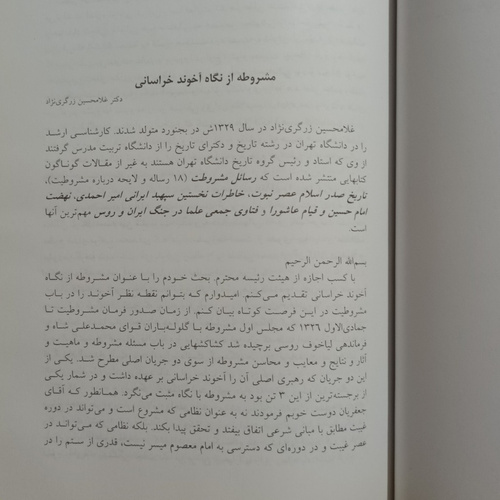 مشروطه از نگاه آخوند خراسانی
دکتر غلامحسین زرگری‌نژاد
غلامحسین زرگری‌نژاد در سال ۱۳۲۹ش در بجنورد متولد شدند. کارشناسی ارشد
را در دانشگاه تهران در رشته تاریخ و دکترای تاریخ را از دانشگاه تربیت مدرس گرفتند
از وی که استاد و رئیس گروه تاریخ دانشگاه تهران هستند به غیر از مقالات گوناگون
کتابهایی منتشر شده است که رسائل مشروطیت (۱۸ رساله و لایحه درباره مشروطیت)،
تاریخ صدر اسلام عصر نبوت، خاطرات نخستین سپهبد ایرانی امیر احمدی، نهضت
امام حسین و قیام عاشورا و فتاوی جمعی علما در جنگ ایران و روس مهم‌ترین آنها
است.
بسم‌الله الرحمن الرحیم
با کسب اجازه از هیئت رئیسه محترم. بحث خودم را با عنوان مشروطه از نگاه
آخوند خراسانی تقدیم می‌کنم. امیدوارم که بتوانم نقطه نظر آخوند را در باب
مشروطیت در این فرصت کوتاه بیان کنم. از زمان صدور فرمان مشروطیت تا
جمادی‌الاول ۱۳۲۶ که مجلس اول مشروطه با گلوله‌باران قوای محمدعلی شاه و
فرماندهی لیاخوف روسی برچیده شد کشاکشهایی در باب مسئله مشروطه و ماهیت و
آثار و نتایج و معایب و محاسن مشروطه از سوی دو جریان اصلی مطرح شد. یکی از
این دو جریان که رهبری اصلی آن را آخوند خراسانی بر عهده داشت و در شمار یکی
از برجسته‌ترین از این ۳ تن بود به مشروطه با نگاه مثبت می‌نگرد. همانطور که آقای
جعفریان دوست خوبم فرمودند نه به عنوان نظامی که مشروع است و می‌تواند در دوره
غیبت مطابق با مبانی شرعی اتفاق بیفتد و تحقق پیدا بکند. بلکه نظامی که می‌تواند در
عصر غیبت و در دوره‌ای که دسترسی به امام معصوم میسر نیست، قدری از ستم را در